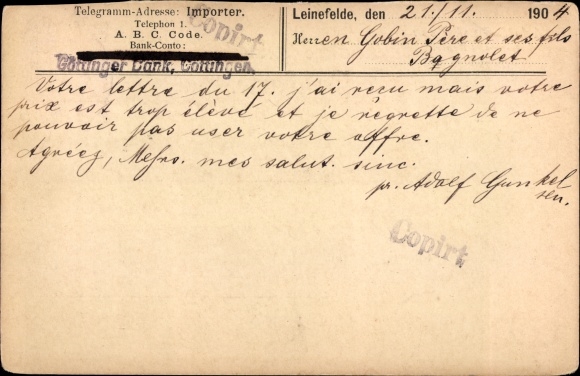 Telegramm-Adresse: Importer.
Telephon 1.
A. B. C. Code.
Bank-Conto:
Göttinger Bank, Göttingen.
Copirt
Leinefelde, den 21./11. 1904
Herren Gobin Père et ses fils
Bagnolet
Votre lettre du 17. j'ai reçu mais votre
prix est trop élévé et je régrette de ne
pouvoir pas user votre offre.
Agréez, Messrs. mes salut. sinc.
pr. Adolf Gunkel
sen.
Copirt